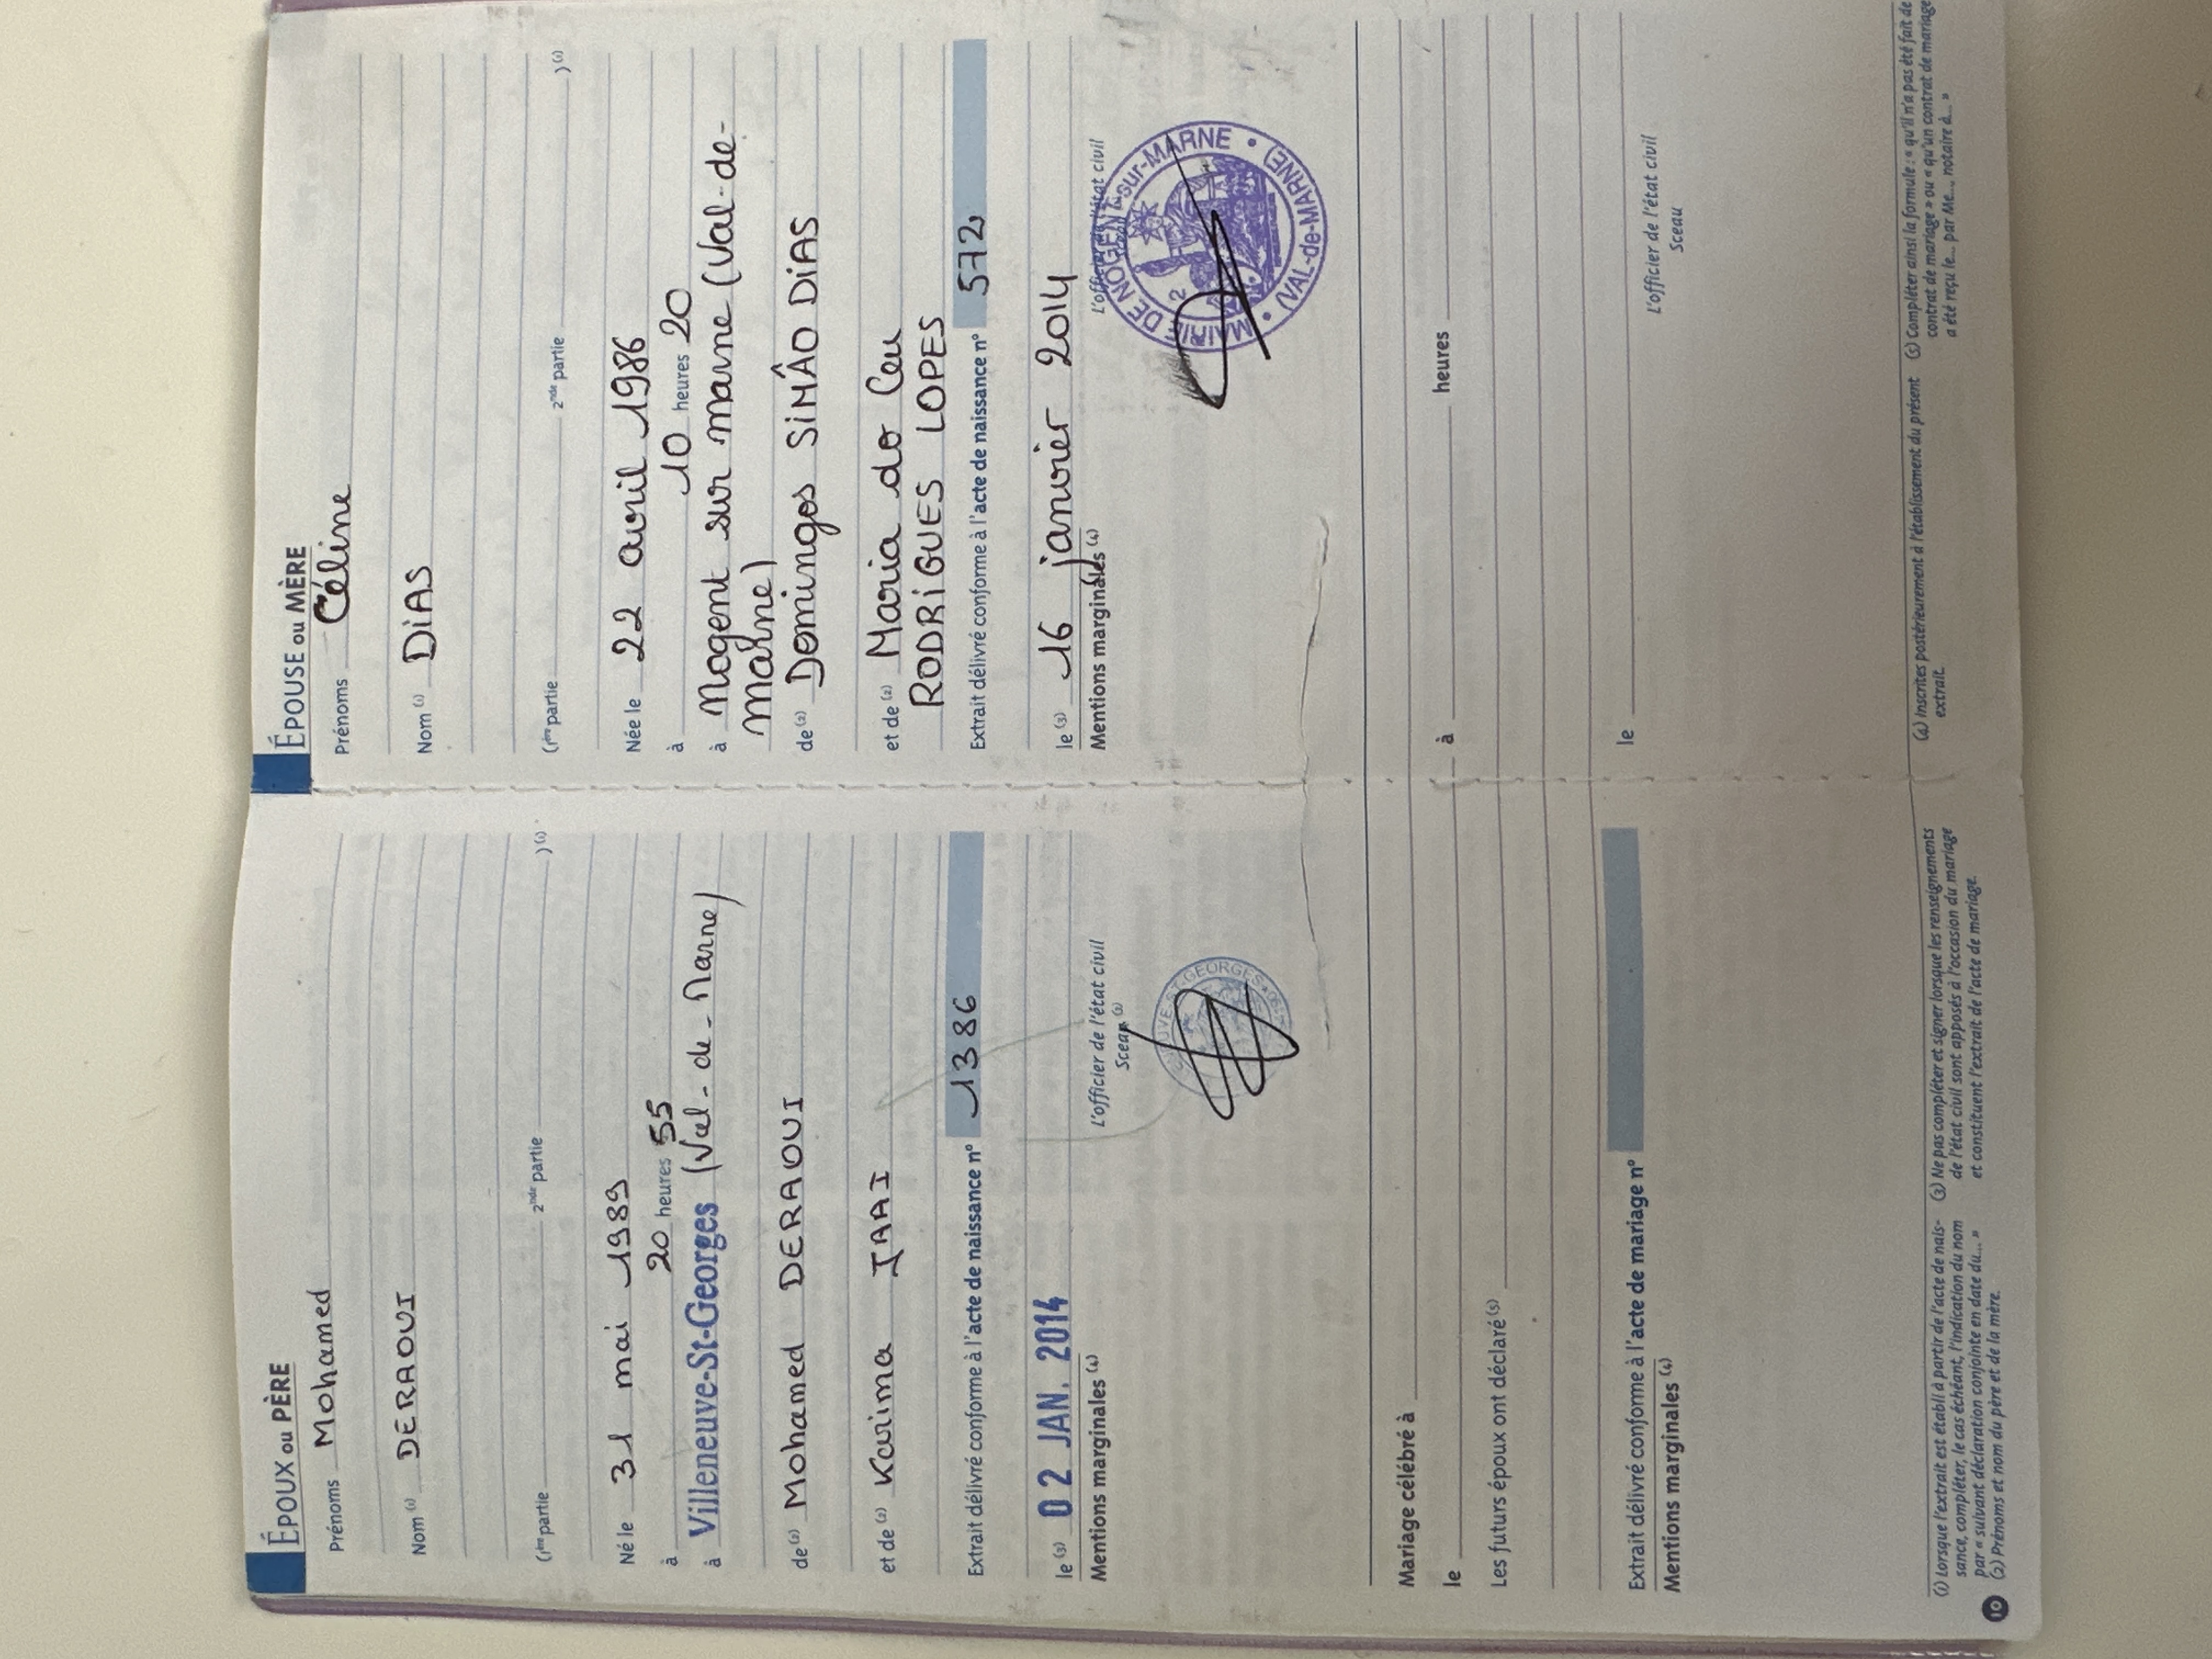 ÉPOUX ou PÈRE
Prénoms Mohamed
Nom (1) DERAOUI
(1ère partie 2nde partie )(1)
Né le 31 mai 1989
à 20 heures 55
à Villeneuve-St-Georges (Val-de-Marne)
de (2) Mohamed DERAOUI
et de (2) Karima
Extrait délivré conforme à l'acte de naissance n° 1386
le (3) 02 JAN. 2014
Mentions marginales (4)
L'officier de l'état civil
Sceau (3)
ÉPOUSE ou MÈRE
Prénoms Céline
Nom (1) DiAS
(1ère partie 2nde partie )(1)
Née le 22 avril 1986
à 10 heures 20
à Nogent sur marne (Val-de-
Marne)
de (2) Domingos SiMÂO DiAS
et de (2) Maria do Ceu
RODRiGUES LOPES
Extrait délivré conforme à l'acte de naissance n° 572
le (3) 16 janvier 2014
Mentions marginales (4)
L'officier de l'état civil
MAIRIE DE NOGENT-sur-MARNE
(VAL-de-MARNE)
Mariage célébré à
le à heures
Les futurs époux ont déclaré (5)
Extrait délivré conforme à l'acte de mariage n° le
Mentions marginales (4)
L'officier de l'état civil
Sceau
(1) Lorsque l'extrait est établi à partir de l'acte de nais-
sance, compléter, le cas échéant, l'indication du nom
par « suivant déclaration conjointe en date du... »
(2) Prénoms et nom du père et de la mère.
(3) Ne pas compléter et signer lorsque les renseignements
de l'état civil sont apposés à l'occasion du mariage
et constituent l'extrait de l'acte de mariage.
(4) Inscrites postérieurement à l'établissement du présent
extrait.
(5) Compléter ainsi la formule : « qu'il n'a pas été fait de
contrat de mariage » ou « qu'un contrat de mariage
a été reçu le... par Me..., notaire à... »
10